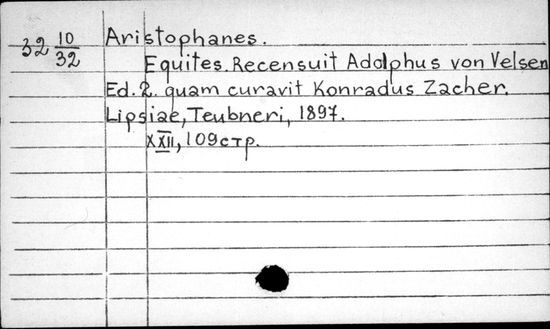 32 10/32
Aristophanes.
Equites. Recensuit Adolphus von Velsen
Ed. 2. quam curavit Konradus Zacher.
Lipsiae, Teubneri, 1897.
XXII, 109 стр.